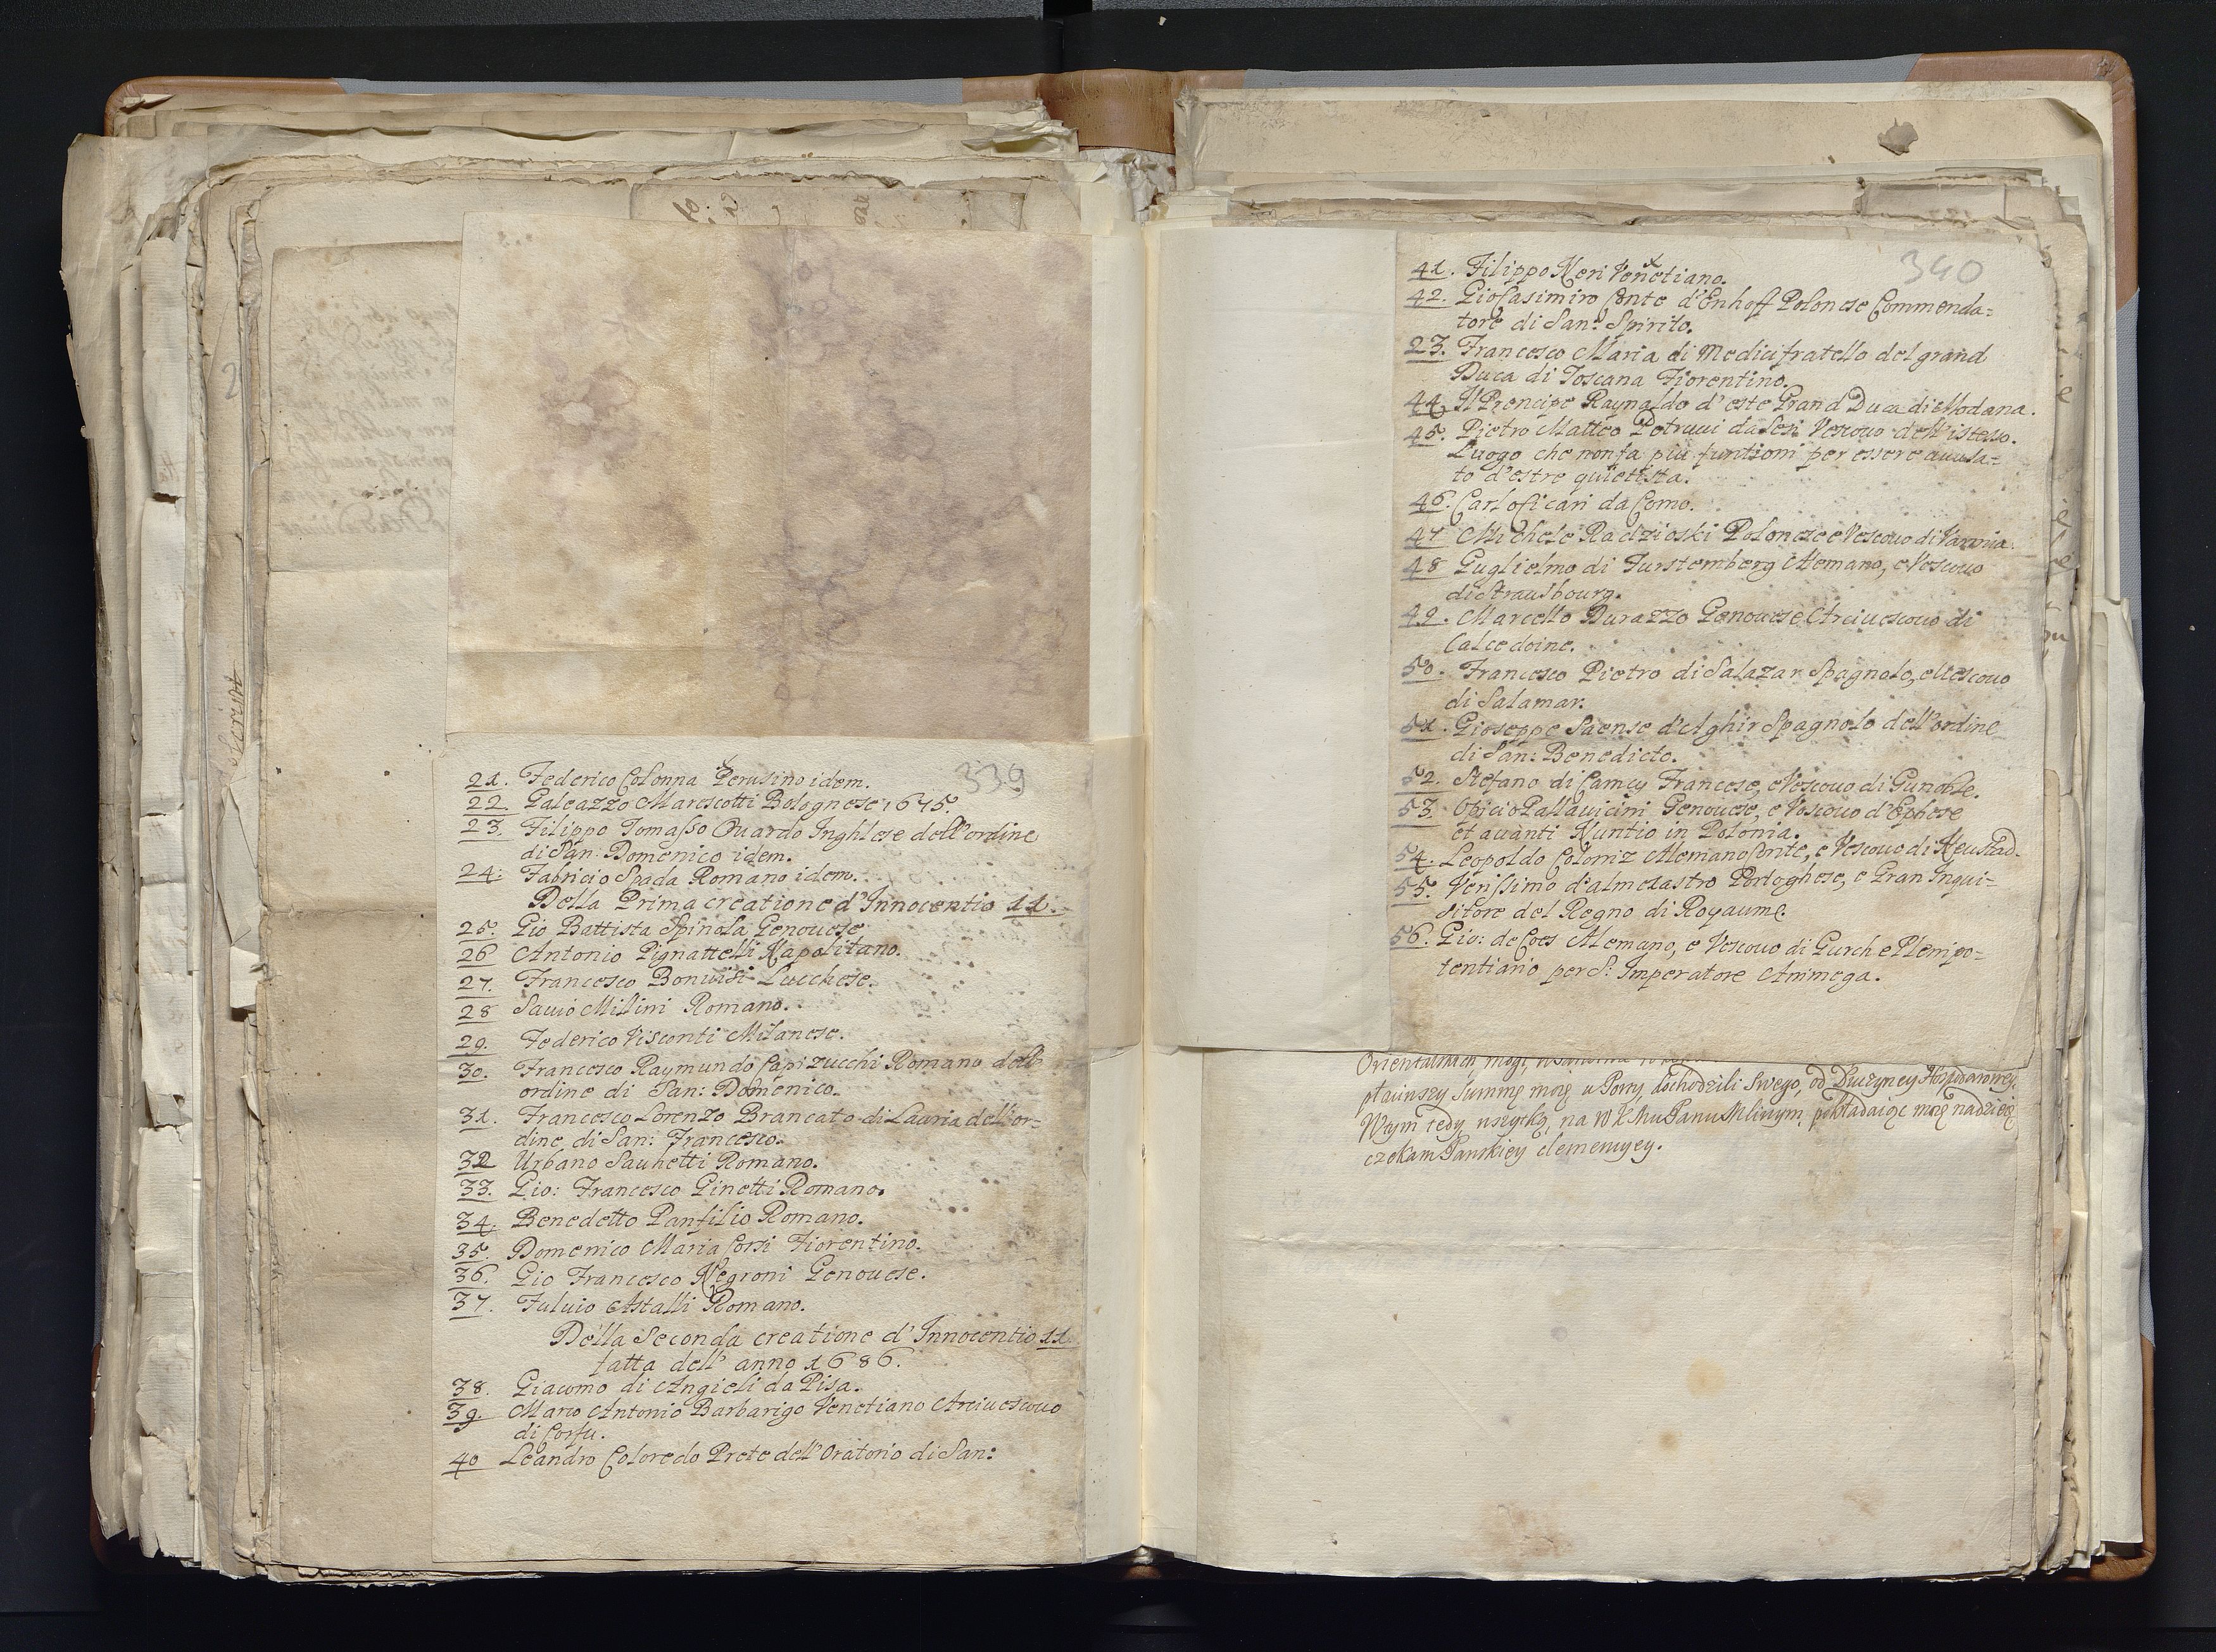 339
21. Federico Colonna Perusino idem.
22. Galeazzo Marescotti Bolognese 1675.
23. Filippo Tomasso Ouardo Inghlese dell'ordine
di San: Domenico idem.
24: Fabricio Spada Romano idem.
Della Prima creatione d'Innocentio 11.
25. Gio Battista Spinola Genouese.
26 Antonio Pignattelli Napolitano.
27. Francesco Bonuisi Lucchese.
28 Sauio Milini Romano.
29. Federico Visconti Milanese.
30. Francesco Raymundo Capizucchi Romano dell'
ordine di San: Domenico.
31. Francesco Lorenzo Brancato di Lauria dell'or=
dine di San: Francesco.
32 Urbano Sauhetti Romano.
33. Gio: Francesco Ginetti Romano.
34. Benedetto Panfilio Romano.
35. Domenico Maria Corsi Fiorentino.
36. Gio Francesco Negroni Genouese.
37. Fuluio Astalli Romano.
Della Seconda creatione d'Innocentio 11
fatta dell' anno 1686.
38. Giacomo di Angieli da Pisa.
39. Marco Antonio Barbarigo Venetiano Arciuescouo
di Corfu.
40 Leandro Coloredo Prete dell'Oratorio di San:
340
41. Filippo Neri Venetiano.
42. Gio Casimiro Conte d'Enhoff Polonese Commenda=
tore di San: Spirito.
23. Francesco Maria di Medici fratello del grand
Duca di Toscana Fiorentino.
44. Il Prencipe Raynaldo d'este Grand Duca di Modana.
45. Pietro Matteo Petrucci da Iesi Vescouo dell'istesso.
Luogo che non fa più funtioni per essere accusa=
to d'estre quietista.
46. Carlo Cicari da Como.
47 Michele Radzioski Polonese e Vescouo di Varmia.
48 Guglielmo di Furstemberg Alemano, e Vescouo
di Strausbourg.
49. Marcello Durazzo Genouese Arciuescouo di
Calcedoine.
50. Francesco Pietro di Salazar Spagnolo, e Vescouo
di Salamar.
51. Gioseppe Saense d'Alghir Spagnolo dell'ordine
di San: Benedicto.
52. Stefano di Camey Francese, e Vescouo di Gunoble.
53. Opicio Pallauicini Genouese, e Vescouo d'Ephese
et auanti Nuntio in Polonia.
54. Leopoldo Coloniz Alemano Conte, e Vescouo di Neustad.
55. Verissimo d'almelastro Portoghese, e Gran Inqui=
sitore del Regno di Royaume.
56. Gio: de Goes Alemano, e Vescouo di Gurch e Plenipo=
tentiario per S: Imperatore Animega.
Orientalnach, mogę,
summę moię u Porty, dochodzili swego, od
Wtym tedy wszytkę, na W K Mu Panu Mliwym, pokładaiąc mnę nadzieię
czekam Panskiey clemencyey.